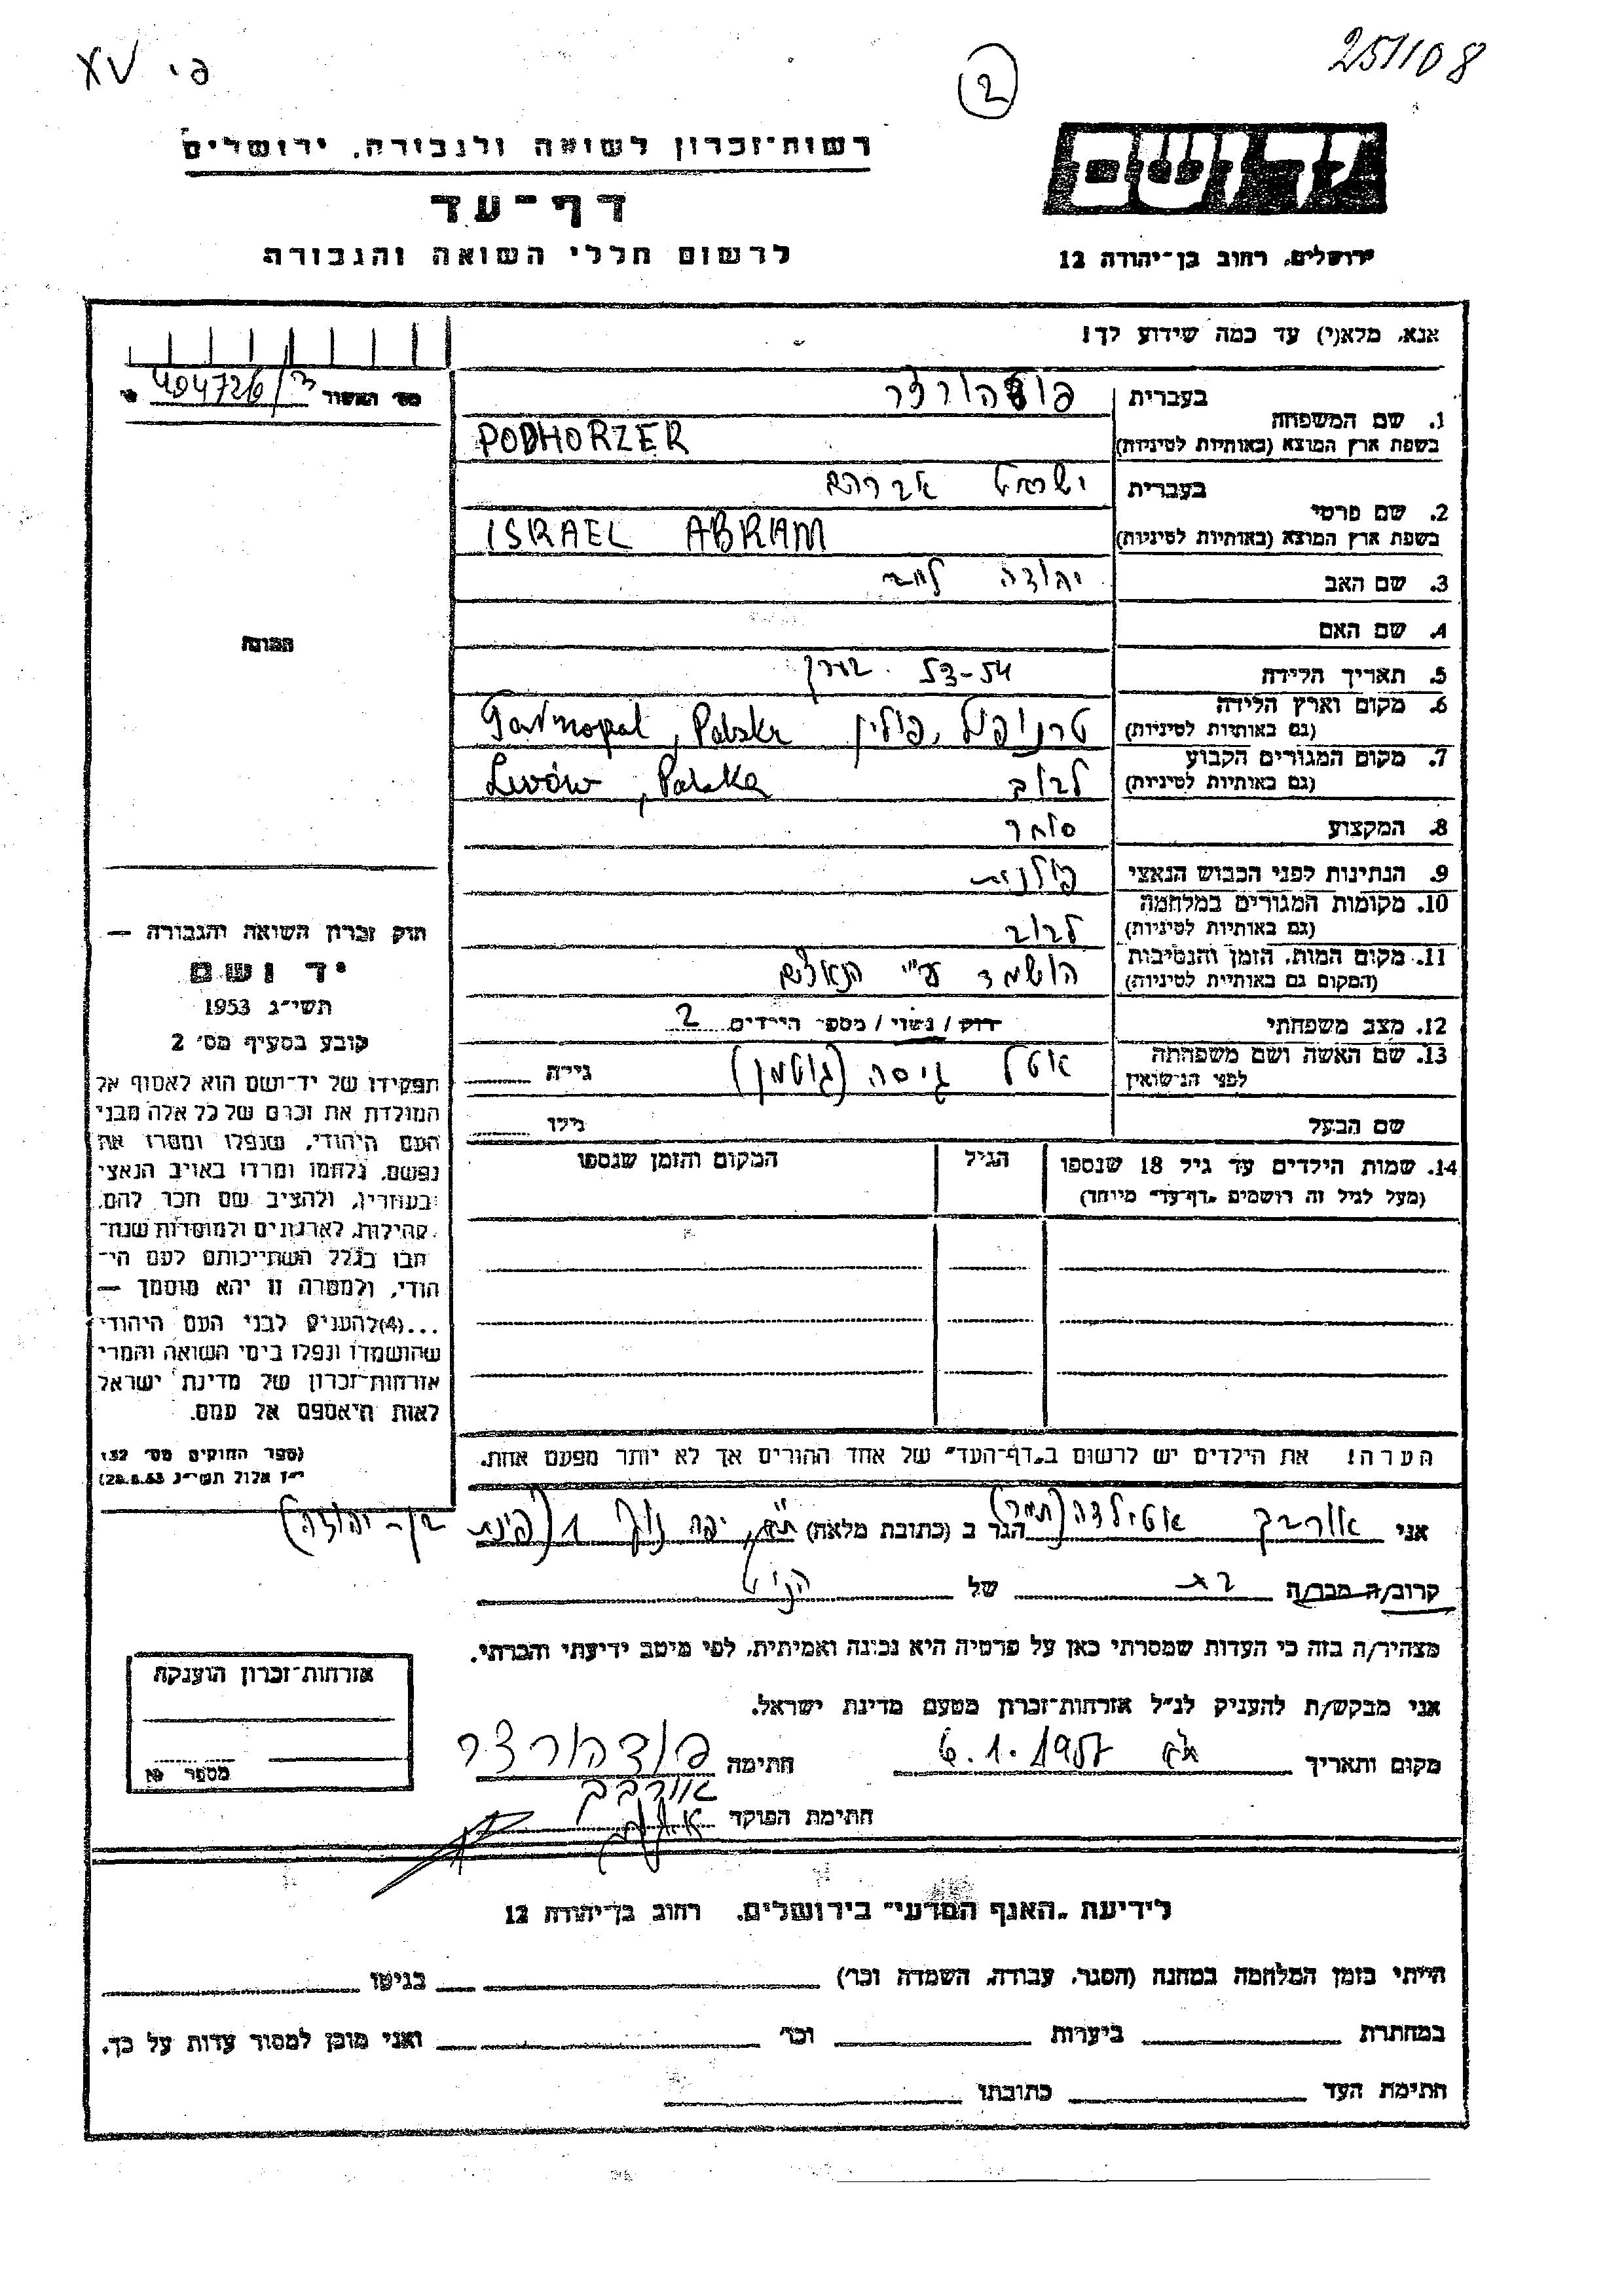 251108
2
פי XV
יד ושם
ירושלים, רחוב בן־יהודה 12
רשות־זכרון לשואה ולגבורה, ירושלים
דף־עד
לרשום חללי השואה והגבורה
אנא, מלא(י) עד כמה שידוע לך!
מס׳ האשור 404726/
1. שם המשפחה
בעברית פודהורצר
בשפת ארץ המוצא (באותיות לטיניות) PODHORZER
2. שם פרטי
בעברית ישראל אברהם
בשפת ארץ המוצא (באותיות לטיניות) ISRAEL ABRAM
3. שם האב יהודה לייב
4. שם האם
5. תאריך הלידה 53-54 בערך
6. מקום וארץ הלידה
(גם באותיות לטיניות) טרנופול, פולין Tarnopol, Polska
7. מקום המגורים הקבוע
(גם באותיות לטיניות) לבוב Lwów, Polska
8. המקצוע סוחר
9. הנתינות לפני הכבוש הנאצי פולנית
10. מקומות המגורים במלחמה
(גם באותיות לטיניות) לבוב
11. מקום המות, הזמן והנסיבות
(המקום גם באותיות לטיניות) הושמד ע״י הנאצים
12. מצב משפחתי רוק / נשוי / מספר הילדים 2
13. שם האשה ושם משפחתה
לפני הנישואין אטל גיסה (גוטמן) גילה
שם הבעל גילו
14. שמות הילדים עד גיל 18 שנספו
(מעל לגיל זה רושמים „דף־עד״ מיוחד)
הגיל
המקום והזמן שנספו
הערה! את הילדים יש לרשום ב„דף־העד״ של אחד ההורים אך לא יותר מפעם אחת.
התמונה
חוק זכרון השואה והגבורה —
יד ושם
תשי״ג 1953
קובע בסעיף מס׳ 2
תפקידו של יד־ושם הוא לאסוף אל
המולדת את זכרם של כל אלה מבני
העם היהודי, שנפלו ומסרו את
נפשם, נלחמו ומרדו באויב הנאצי
ובעוזריו, ולהציב שם וזכר להם,
לקהילות, לארגונים ולמוסדות שנח־
רבו בגלל השתייכותם לעם הי־
הודי, ולמטרה זו יהא מוסמך —
...(4) להעניק לבני העם היהודי
שהושמדו ונפלו בימי השואה והמרי
אזרחות־זכרון של מדינת ישראל
לאות היאספם אל עמם.
(ספר החוקים מס׳ 132,
י״ז אלול תשי״ג 28.8.53)
אני אורבך אטילדה (תמר) הגר ב (כתובת מלאה) ת״א, יפה נוף 1 (פינת בן-יהודה)
קרוב/ה מכר/ה בת של הנ״ל
מצהיר/ה בזה כי העדות שמסרתי כאן על פרטיה היא נכונה ואמיתית, לפי מיטב ידיעתי והכרתי.
אני מבקש/ת להעניק לנ״ל אזרחות־זכרון מטעם מדינת ישראל.
מקום ותאריך ת״א 6.1.1957 חתימה פודהורצר
אורבך
חתימת הפוקד
אזרחות־זכרון הוענקה
מספר
לידיעת „האגף המדעי״ בירושלים, רחוב בן־יהודה 12
הייתי בזמן המלחמה במחנה (הסגר, עבודה, השמדה וכו׳) בגיטו
במחתרת ביערות וכו׳ ואני מוכן למסור עדות על כך.
חתימת העד כתובתו